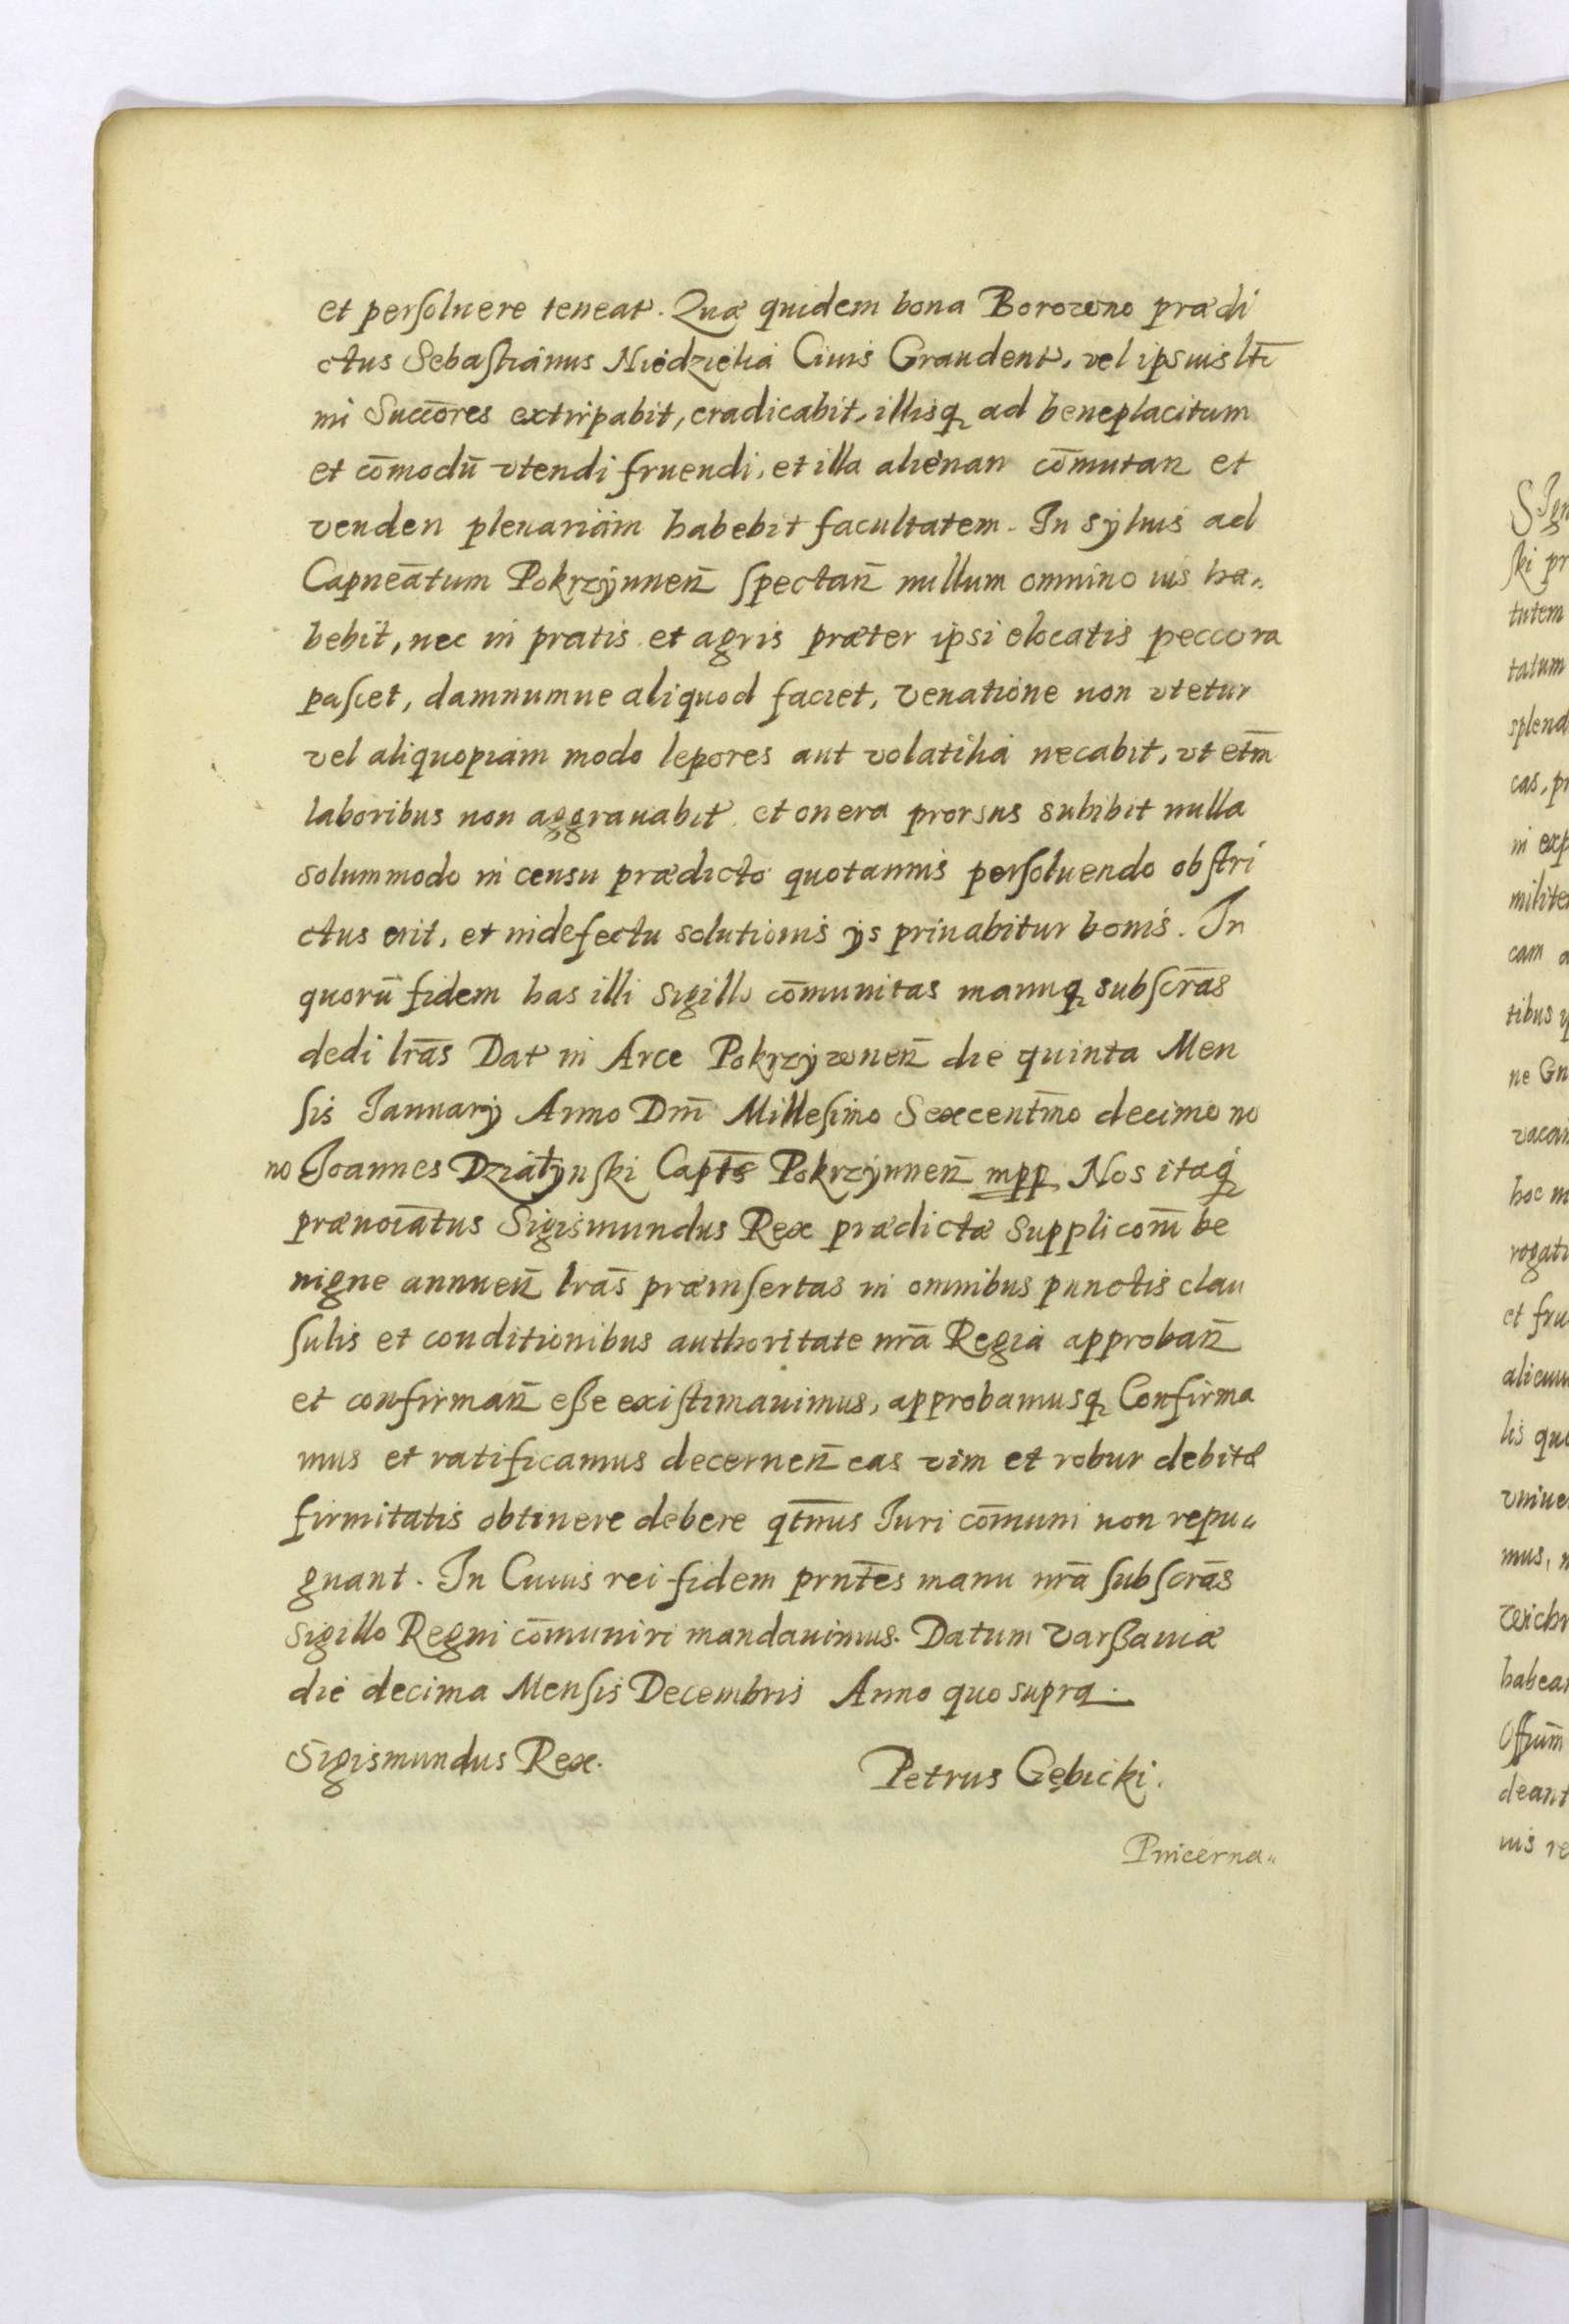 et persoluere teneat. Quæ quidem bona Borowno prædi
ctus Sebastianus Niedzielia Ciuis Graudent, vel ipsius ltī
mi Succōres extirpabit, eradicabit, illisq ad beneplacitum
et cōmodū vtendi fruendi, et illa alienan cōmutan et
venden plenariam habebit facultatem. In syluis ad
Capneātum Pokrzÿwnen̄ spectan̄ nullum omnino ius ha„
bebit, nec in pratis et agris præter ipsi elocatis peccora
pascet, damnumue aliquod faciet, venatione non vtetur
vel aliquopiam modo lepores aut volatilia necabit, vt etm̄
laboribus non aggrauabit et onera prorsus subibit nulla
solummodo in censu prædicto quotannis persoluendo obstri
ctus erit, et in defectu solutionis ÿs priuabitur bonis. In
quorū fidem has illi sigillo cōmunitas manuq subscrās
dedi lrās Dat in Arce Pokrzÿwnen̄ die quinta Men
sis Januarÿ Anno Dnī Millesimo Sexcentm̄o decimo no
no Joannes Działyński Capts̄ Pokrzÿwnen̄ mpp Nos itaq
prænoīatus Sigismundus Rex prædictæ supplicom̄ be
nigne annuen̄ lrās præinsertas in omnibus punctis clau
sulis et conditionibus authoritate nrā Regia approban̄
et confirman̄ eße existimauimus, approbamusq Confirma
mus et ratificamus decernen̄ eas vim et robur debitæ
firmitatis obtinere debere qtn̄us Juri cōmuni non repu„
gnant. In Cuius rei fidem prntēs manu nrā subscrās
sigillo Regni cōmuniri mandauimus. Datum Varßauiæ
die decima Mensis Decembris Anno quo supra.
Sigismundus Rex.
Petrus Gębicki.
Pincerna„
S Ign
ski pr
tutem
tatum
splend
cas, pr
in exp
milite
cam a
tibus
ne Gn
vacan
hoc m
rogat
et fru
alicuiu
lis qu
vniue
mus,
Wichr
habea
Offium̄
deant
uis re